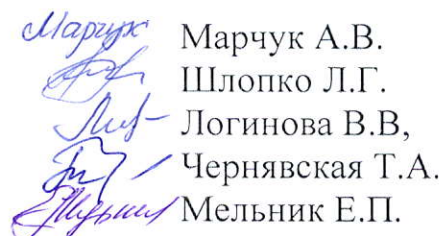 Марчук Марчук А.В.
Шлопко Л.Г.
Логинова В.В,
Чернявская Т.А.
Мельник Е.П.